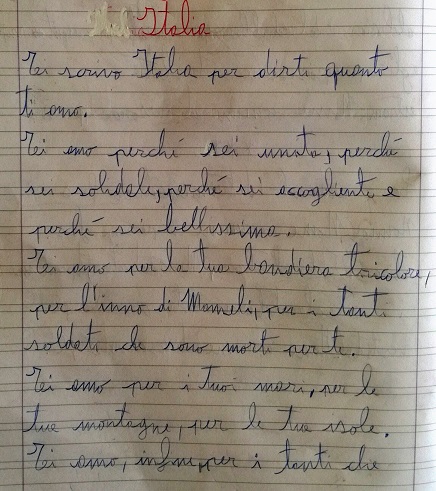 Italia
Ti scrivo Italia per dirti quanto
ti amo.
Ti amo perché sei unita, perché
sei solidale, perché sei accogliente e
perché sei bellissima.
Ti amo per la tua bandiera tricolore,
per l'inno di Mameli, per i tanti
soldati che sono morti per te.
Ti amo per i tuoi mari, per le
tue montagne, per le tue isole.
Ti amo, infine, per i tanti che